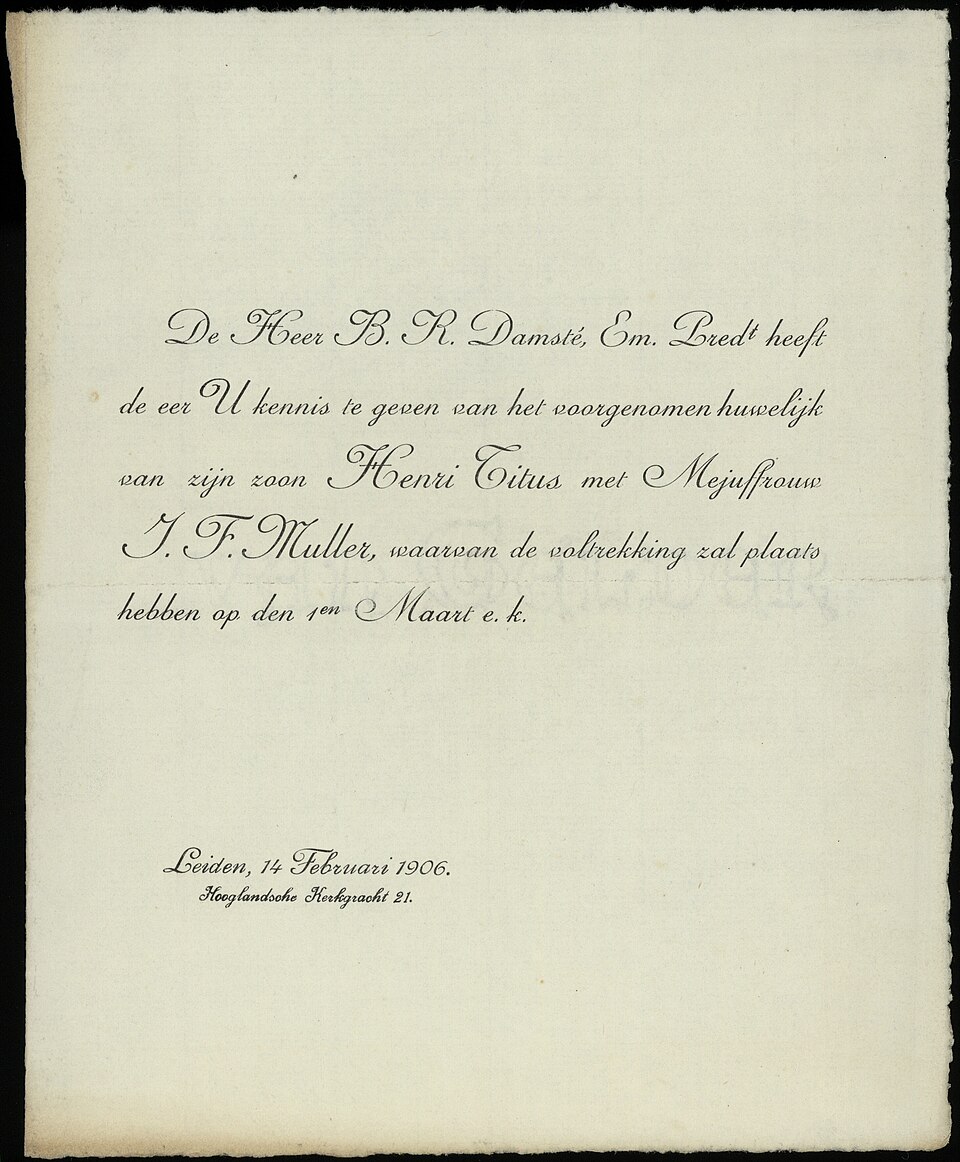 De Heer B. R. Damsté, Em. Predt heeft
de eer U kennis te geven van het voorgenomen huwelijk
van zijn zoon Henri Titus met Mejuffrouw
J. F. Muller, waarvan de voltrekking zal plaats
hebben op den 1en Maart e. k.
Leiden, 14 Februari 1906.
Hooglandsche Kerkgracht 21.